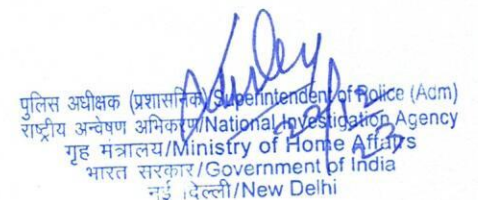 पुलिस अधीक्षक (प्रशासनिक)/Superintendent of Police (Adm)
राष्ट्रीय अन्वेषण अभिकरण/National Investigation Agency
गृह मंत्रालय/Ministry of Home Affairs
भारत सरकार/Government of India
नई दिल्ली/New Delhi